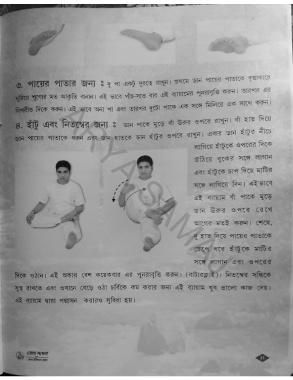 ৩. পায়ের পাতার জন্য ঃ দু পা একটু দূরত্বে রাখুন। প্রথমে ডান পায়ের পাতাকে বৃত্তাকারে
ঘুরিয়ে শূন্যের মত আকৃতি বানান। এই ভাবে পাঁচ-সাত বার এই ব্যায়ামের পুনরাবৃত্তি করুন। তারপর এর
বিপরীত দিকে করুন। এই ভাবে অন্য পা এবং তারপর দুটো পাকে এক সঙ্গে মিলিয়ে এক সাথে করুন।
৪. হাঁটু এবং নিতম্বের জন্য ঃ ডান পাকে মুড়ে বাঁ উরুর ওপরে রাখুন। বাঁ হাত দিয়ে
ডান পায়ের পাতাকে ধরুন এবং ডান হাতকে ডান হাঁটুর ওপরে রাখুন। এবার ডান হাঁটুর নীচে
লাগিয়ে হাঁটুকে ওপরের দিকে
উঠিয়ে বুকের সঙ্গে লাগান
এবং হাঁটুকে চাপ দিয়ে মাটির
সঙ্গে লাগিয়ে দিন। এই ভাবে
এই ব্যায়াম বাঁ পাকে মুড়ে
ডান উরুর ওপর রেখে
আগের মতই করুন। শেষে,
দু হাত দিয়ে পায়ের পাতাকে
চেপে ধরে হাঁটুকে মাটির
সঙ্গে লাগান এবং ওপরের
দিকে ওঠান। এই প্রকার বেশ কয়েকবার এর পুনরাবৃত্তি করুন। (বাটারফ্লাই)। নিতম্বের সন্ধিকে
সুস্থ রাখতে এবং ওখানে বেড়ে ওঠা চর্বিকে কম করার জন্য এই ব্যায়াম খুব ভালো কাজ দেয়।
এই ব্যায়াম দ্বারা পদ্মাসন করারও সুবিধা হয়।